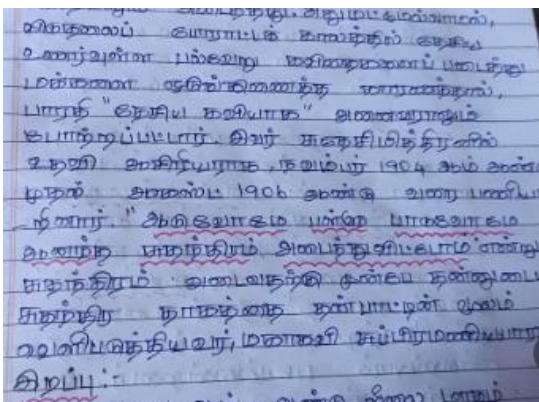 அதுமட்டுமல்லாமல்,
விடுதலைப் போராட்ட காலத்தில் தேசிய
உணர்வுள்ள பல்வேறு கவிதைகளைப் படைத்து
மக்களை ஒருங்கிணைத்த காரணத்தால்,
பாரதி "தேசிய கவியாக" அனைவராலும்
போற்றப்பட்டார். இவர் சுதேசிமித்திரனில்
உதவி ஆசிரியராக நவம்பர் 1904 ஆம் ஆண்டு
முதல் ஆகஸ்ட் 1906 ஆண்டு வரை பணியா
றினார். "ஆடுவோமே பள்ளு பாடுவோமே
ஆனந்த சுதந்திரம் அடைந்துவிட்டோம்" என்று
சுதந்திரம் அடைவதற்கு முன்பே தன்னுடைய
சுதந்திர தாகத்தை தன் பாட்டின் மூலம்
வெளிபடுத்தியவர், மகாகவி சுப்பிரமணியபாரதி
சிறப்பு:-